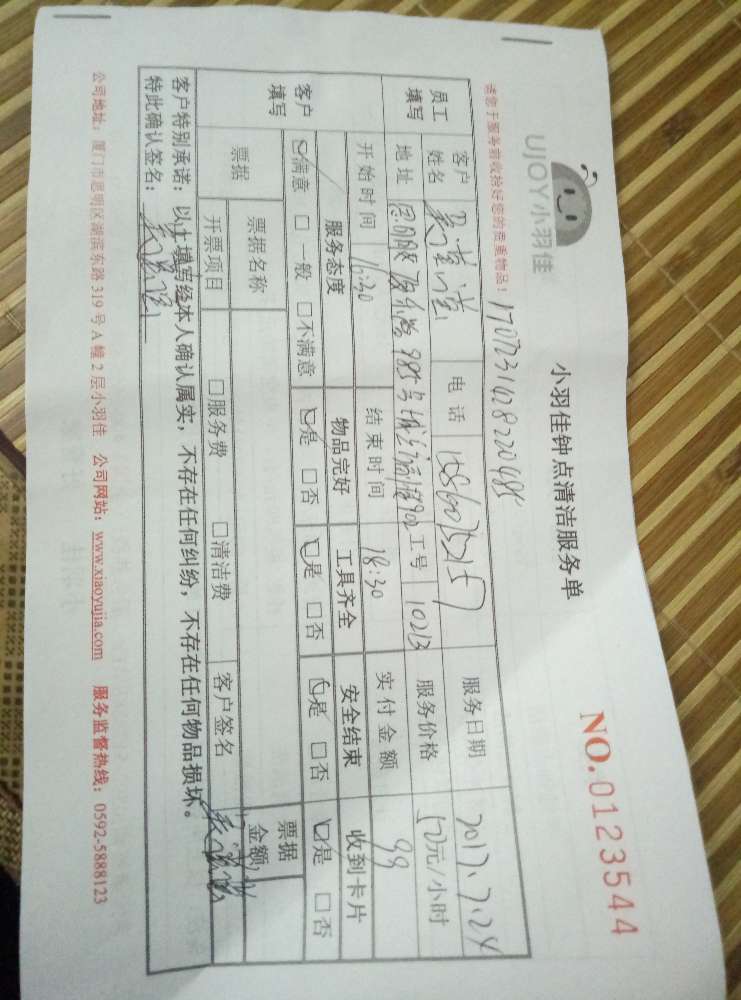 UJOY小羽佳
小羽佳钟点清洁服务单
NO.0123544
请您于服务前收拾好您的贵重物品!
170723142822048
员工填写
客户姓名
电话
服务日期 2017.7.24
地址
工号 10213
服务价格 50元/小时
开始时间 16:30
结束时间 18:30
实付金额 99
客户填写
服务态度 物品完好 工具齐全 安全结束 收到卡片
☑满意 □一般 □不满意 ☑是 □否 ☑是 □否 ☑是 □否 ☑是 □否
票据
票据名称
票据金额
开票项目 □服务费 □清洁费 客户签名
客户特别承诺:以上填写经本人确认属实,不存在任何纠纷,不存在任何物品损坏。
特此确认签名:
公司地址:厦门市思明区湖滨东路 319 号 A 幢 2 层小羽佳 公司网站:www.xiaoyujia.com 服务监督热线:0592-5888123